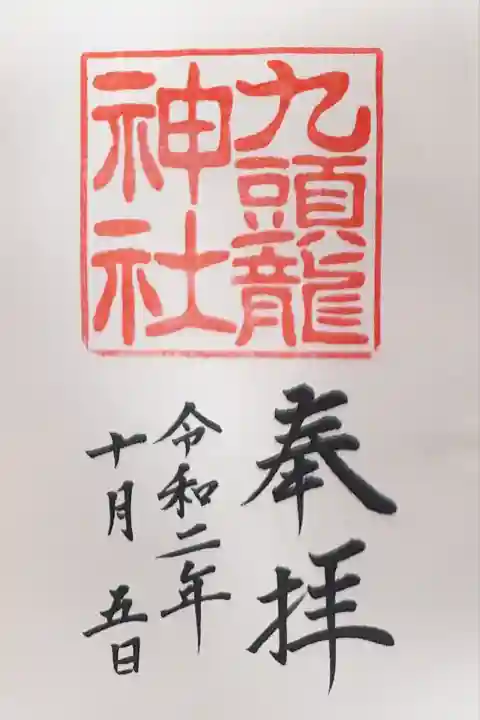 九頭龍
神社
奉拝
令和二年
十月 五日